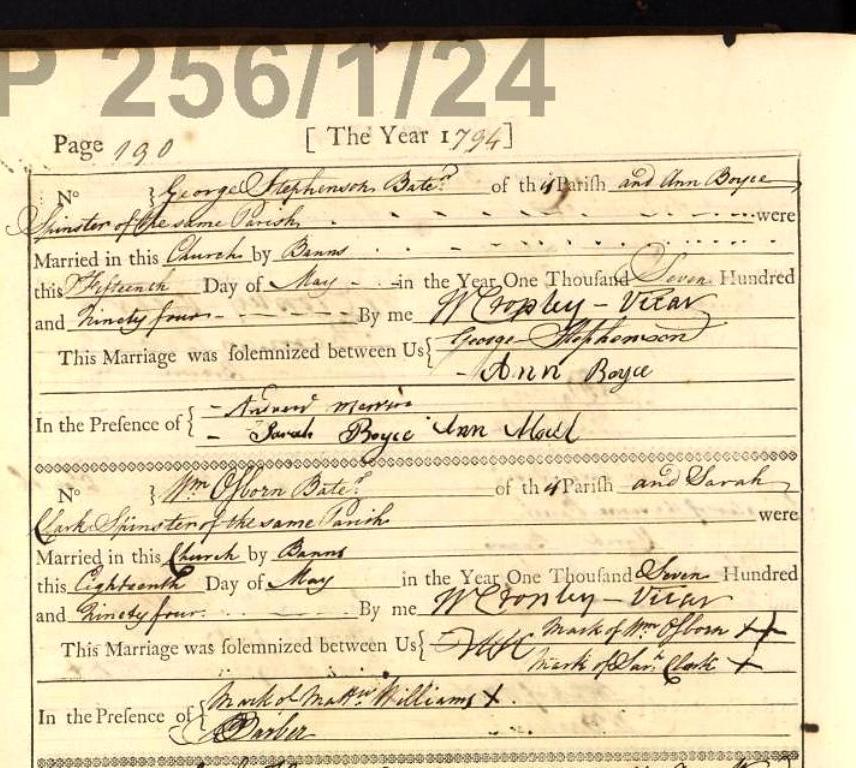 P 256/1/24
Page 190 [ The Year 1794 ]
No } George Stephenson Batcr. of this Parish and Ann Boyce
Spinster of the same Parish were
Married in this Church by Banns
this Fifteenth Day of May in the Year One Thousand Seven Hundred
and Ninety four By me W Cropley - Vicar
This Marriage was solemnized between Us { George Stephenson
- Ann Boyce
In the Presence of { - Andrew
- Sarah Boyce Ann
No } Wm Osborn Batcr. of this Parish and Sarah
Clark Spinster of the same Parish were
Married in this Church by Banns
this Eighteenth Day of May in the Year One Thousand Seven Hundred
and Ninety four By me W Cropley - Vicar
This Marriage was solemnized between Us { Mark of Wm Osborn X
Mark of Sarh Clark X
In the Presence of { Mark of Mattw. Williams X.
Barber